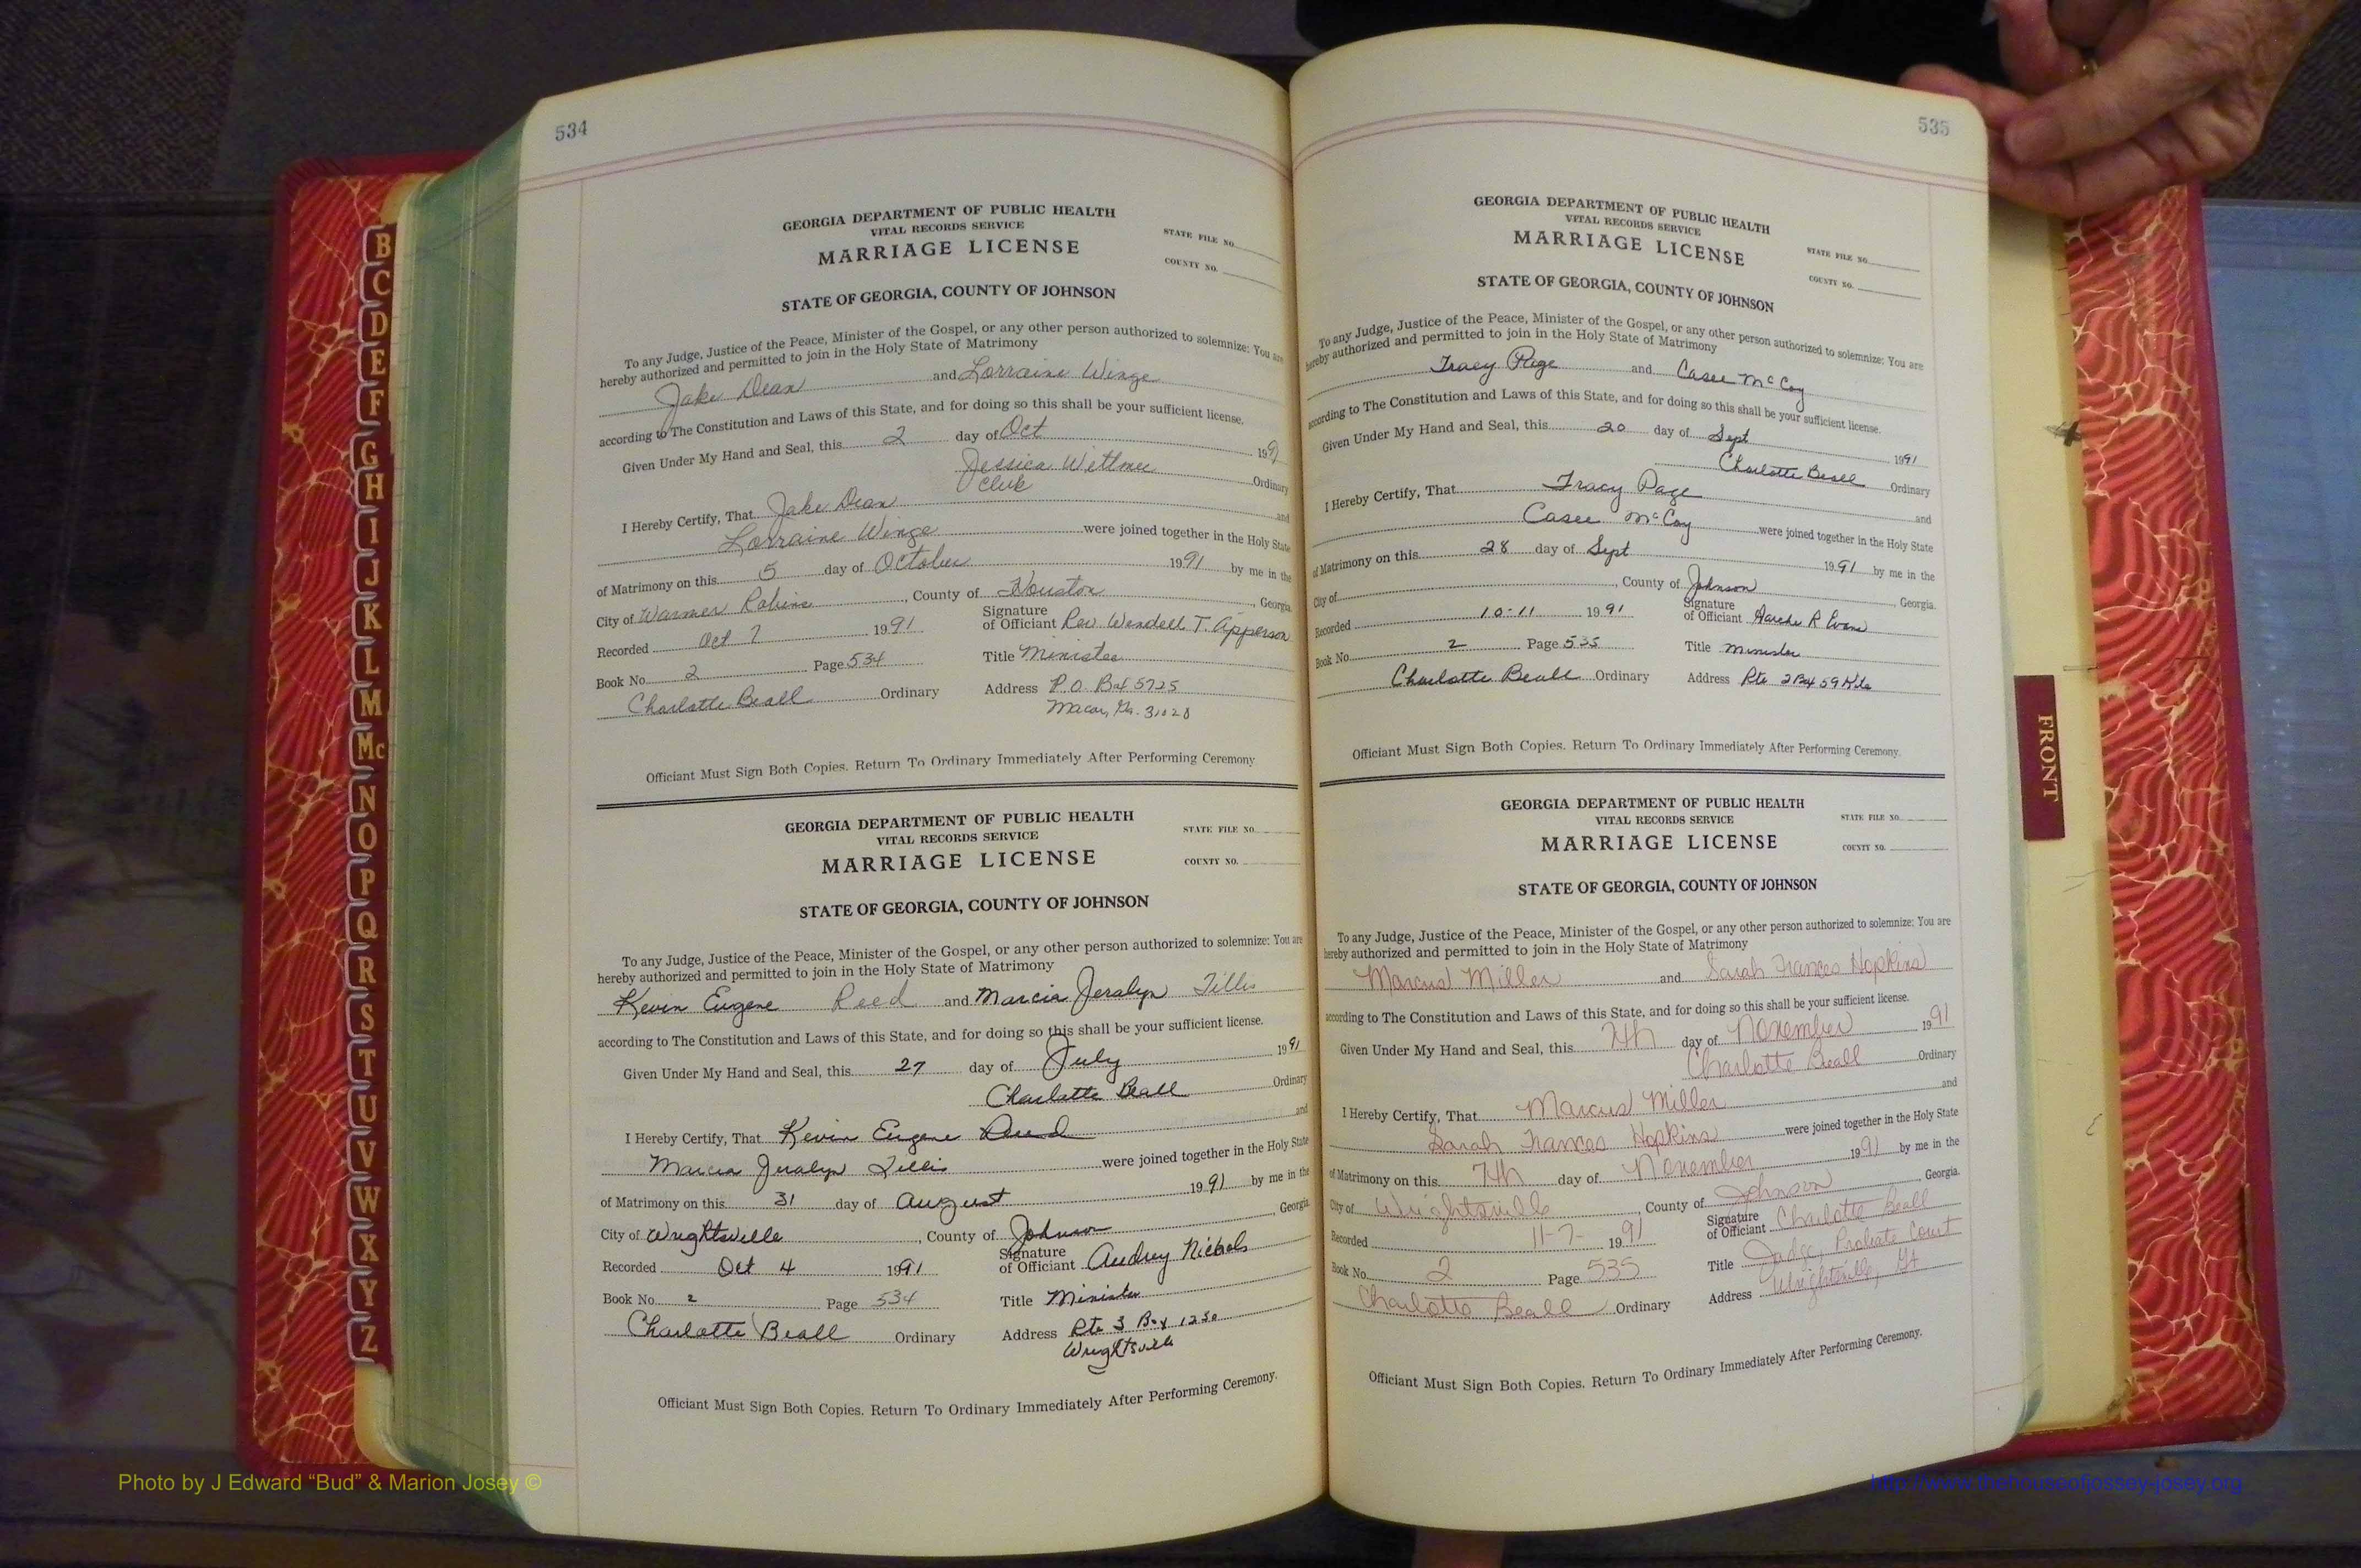 534
GEORGIA DEPARTMENT OF PUBLIC HEALTH
VITAL RECORDS SERVICE
MARRIAGE LICENSE
STATE FILE NO.
COUNTY NO.
STATE OF GEORGIA, COUNTY OF JOHNSON
To any Judge, Justice of the Peace, Minister of the Gospel, or any other person authorized to solemnize: You are
hereby authorized and permitted to join in the Holy State of Matrimony
Jake Dean and Lorraine Winge
according to The Constitution and Laws of this State, and for doing so this shall be your sufficient license.
Given Under My Hand and Seal, this 2 day of Oct 1991
Jessica Ordinary
Clerk
I Hereby Certify, That Jake Dean and
Lorraine Winge were joined together in the Holy State
of Matrimony on this 5 day of October 1991 by me in the
City of Warner Robins, County of Houston, Georgia
Recorded Oct 7 1991
Signature
of Officiant Rev. Wendell T. Apperson
Book No. 2 Page 534
Title Minister
Charlotte Beall Ordinary
Address P.O. Box 5725
Macon, Ga. 31028
Officiant Must Sign Both Copies. Return To Ordinary Immediately After Performing Ceremony
GEORGIA DEPARTMENT OF PUBLIC HEALTH
VITAL RECORDS SERVICE
MARRIAGE LICENSE
STATE FILE NO.
COUNTY NO.
STATE OF GEORGIA, COUNTY OF JOHNSON
To any Judge, Justice of the Peace, Minister of the Gospel, or any other person authorized to solemnize: You are
hereby authorized and permitted to join in the Holy State of Matrimony
Kevin Eugene Reed and Marcia Jeralyn Tillis
according to The Constitution and Laws of this State, and for doing so this shall be your sufficient license.
Given Under My Hand and Seal, this 27 day of July 1991
Charlotte Beall Ordinary
I Hereby Certify, That Kevin Eugene Reed and
Marcia Jeralyn Tillis were joined together in the Holy State
of Matrimony on this 31 day of August 1991 by me in the
City of Wrightsville, County of Johnson, Georgia
Recorded Oct 4 1991
Signature
of Officiant Audrey Nichols
Book No. 2 Page 534
Title Minister
Charlotte Beall Ordinary
Address Rte 3 Box 1230
Wrightsville
Officiant Must Sign Both Copies. Return To Ordinary Immediately After Performing Ceremony.
535
GEORGIA DEPARTMENT OF PUBLIC HEALTH
VITAL RECORDS SERVICE
MARRIAGE LICENSE
STATE FILE NO.
COUNTY NO.
STATE OF GEORGIA, COUNTY OF JOHNSON
To any Judge, Justice of the Peace, Minister of the Gospel, or any other person authorized to solemnize: You are
hereby authorized and permitted to join in the Holy State of Matrimony
Tracy Page and Casee McCoy
according to The Constitution and Laws of this State, and for doing so this shall be your sufficient license.
Given Under My Hand and Seal, this 20 day of Sept 1991
Charlotte Beall Ordinary
I Hereby Certify, That Tracy Page and
Casee McCoy were joined together in the Holy State
of Matrimony on this 28 day of Sept 1991 by me in the
City of, County of Johnson, Georgia.
Recorded 10-11 1991
Signature
of Officiant R Evans
Book No. 2 Page 535
Title minister
Charlotte Beall Ordinary
Address Rte 2 Box 59 Kite
Officiant Must Sign Both Copies. Return To Ordinary Immediately After Performing Ceremony.
GEORGIA DEPARTMENT OF PUBLIC HEALTH
VITAL RECORDS SERVICE
MARRIAGE LICENSE
STATE FILE NO.
COUNTY NO.
STATE OF GEORGIA, COUNTY OF JOHNSON
To any Judge, Justice of the Peace, Minister of the Gospel, or any other person authorized to solemnize: You are
hereby authorized and permitted to join in the Holy State of Matrimony
Marcus Miller and Sarah Frances Hopkins
according to The Constitution and Laws of this State, and for doing so this shall be your sufficient license.
Given Under My Hand and Seal, this 7th day of November 1991
Charlotte Beall Ordinary
I Hereby Certify, That Marcus Miller and
Sarah Frances Hopkins were joined together in the Holy State
of Matrimony on this 7th day of November 1991 by me in the
City of Wrightsville, County of Johnson, Georgia.
Recorded 11-7- 1991
Signature
of Officiant Charlotte Beall
Book No. 2 Page 535
Title Judge, Probate Court
Charlotte Beall Ordinary
Address Wrightsville, Ga
Officiant Must Sign Both Copies. Return To Ordinary Immediately After Performing Ceremony.
B
C
D
E
F
G
H
I
J
K
L
M
Mc
N
O
P
Q
R
S
T
U
V
W
X
Y
Z
FRONT
Photo by J Edward “Bud” & Marion Josey ©
http://www.thehouseofjossey-josey.org